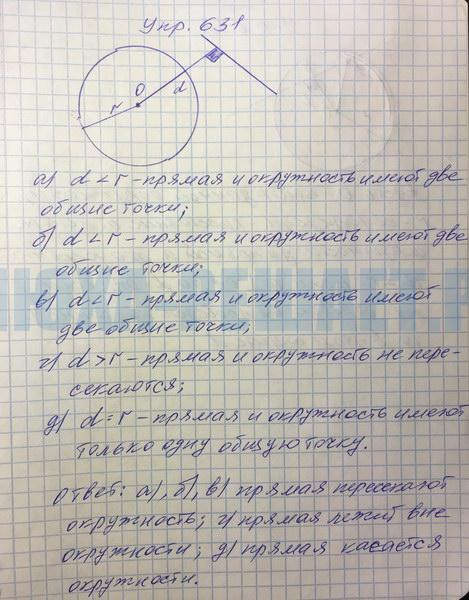 Упр. 631
O
r
d
а) d < r - прямая и окружность имеют две
общие точки;
б) d < r - прямая и окружность имеют две
общие точки;
в) d < r - прямая и окружность имеют
две общие точки;
г) d > r - прямая и окружность не пере-
секаются;
д) d = r - прямая и окружность имеют
только одну общую точку.
Ответ: а), б), в) прямая пересекают
окружность; г) прямая лежит вне
окружности; д) прямая касается
окружности.